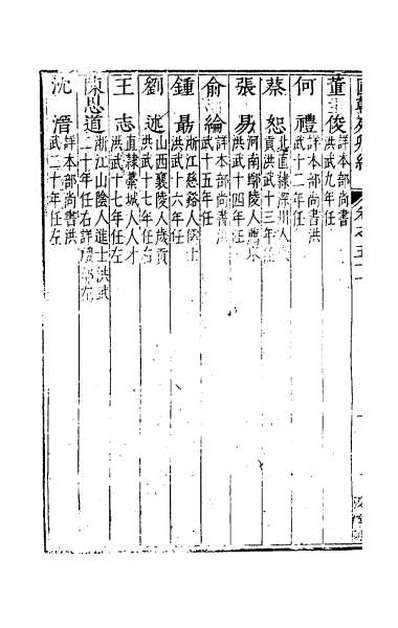 董俊
詳本部尚書
洪武九年任
何禮
詳本部尚書洪
武十二年任
蔡恕
北直隸深州人
貢洪武十三年任
張易
河南鄢陵人
洪武十四年任
俞綸
詳本部尚書洪
武十五年任
鍾勗
浙江慈谿人
洪武十六年任
劉述
山西襄陵人歲貢
洪武十七年任右
王志
直隸藁城人人才
洪武十七年任左
陳思道
浙江山陰人進士洪武
二十年任右詳部左
沈溍
詳本部尚書洪
武二十年任左